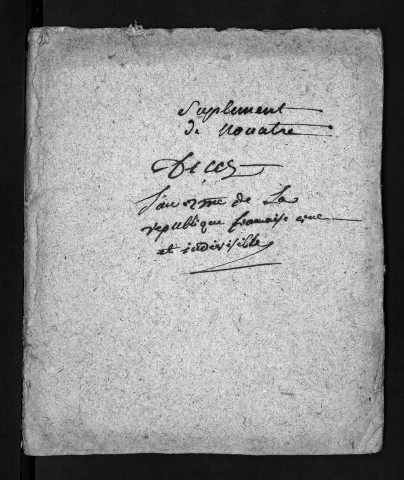 Suplement
de Nouatre
Deces
L'an 2me de La
republique francaise une
et indivisible